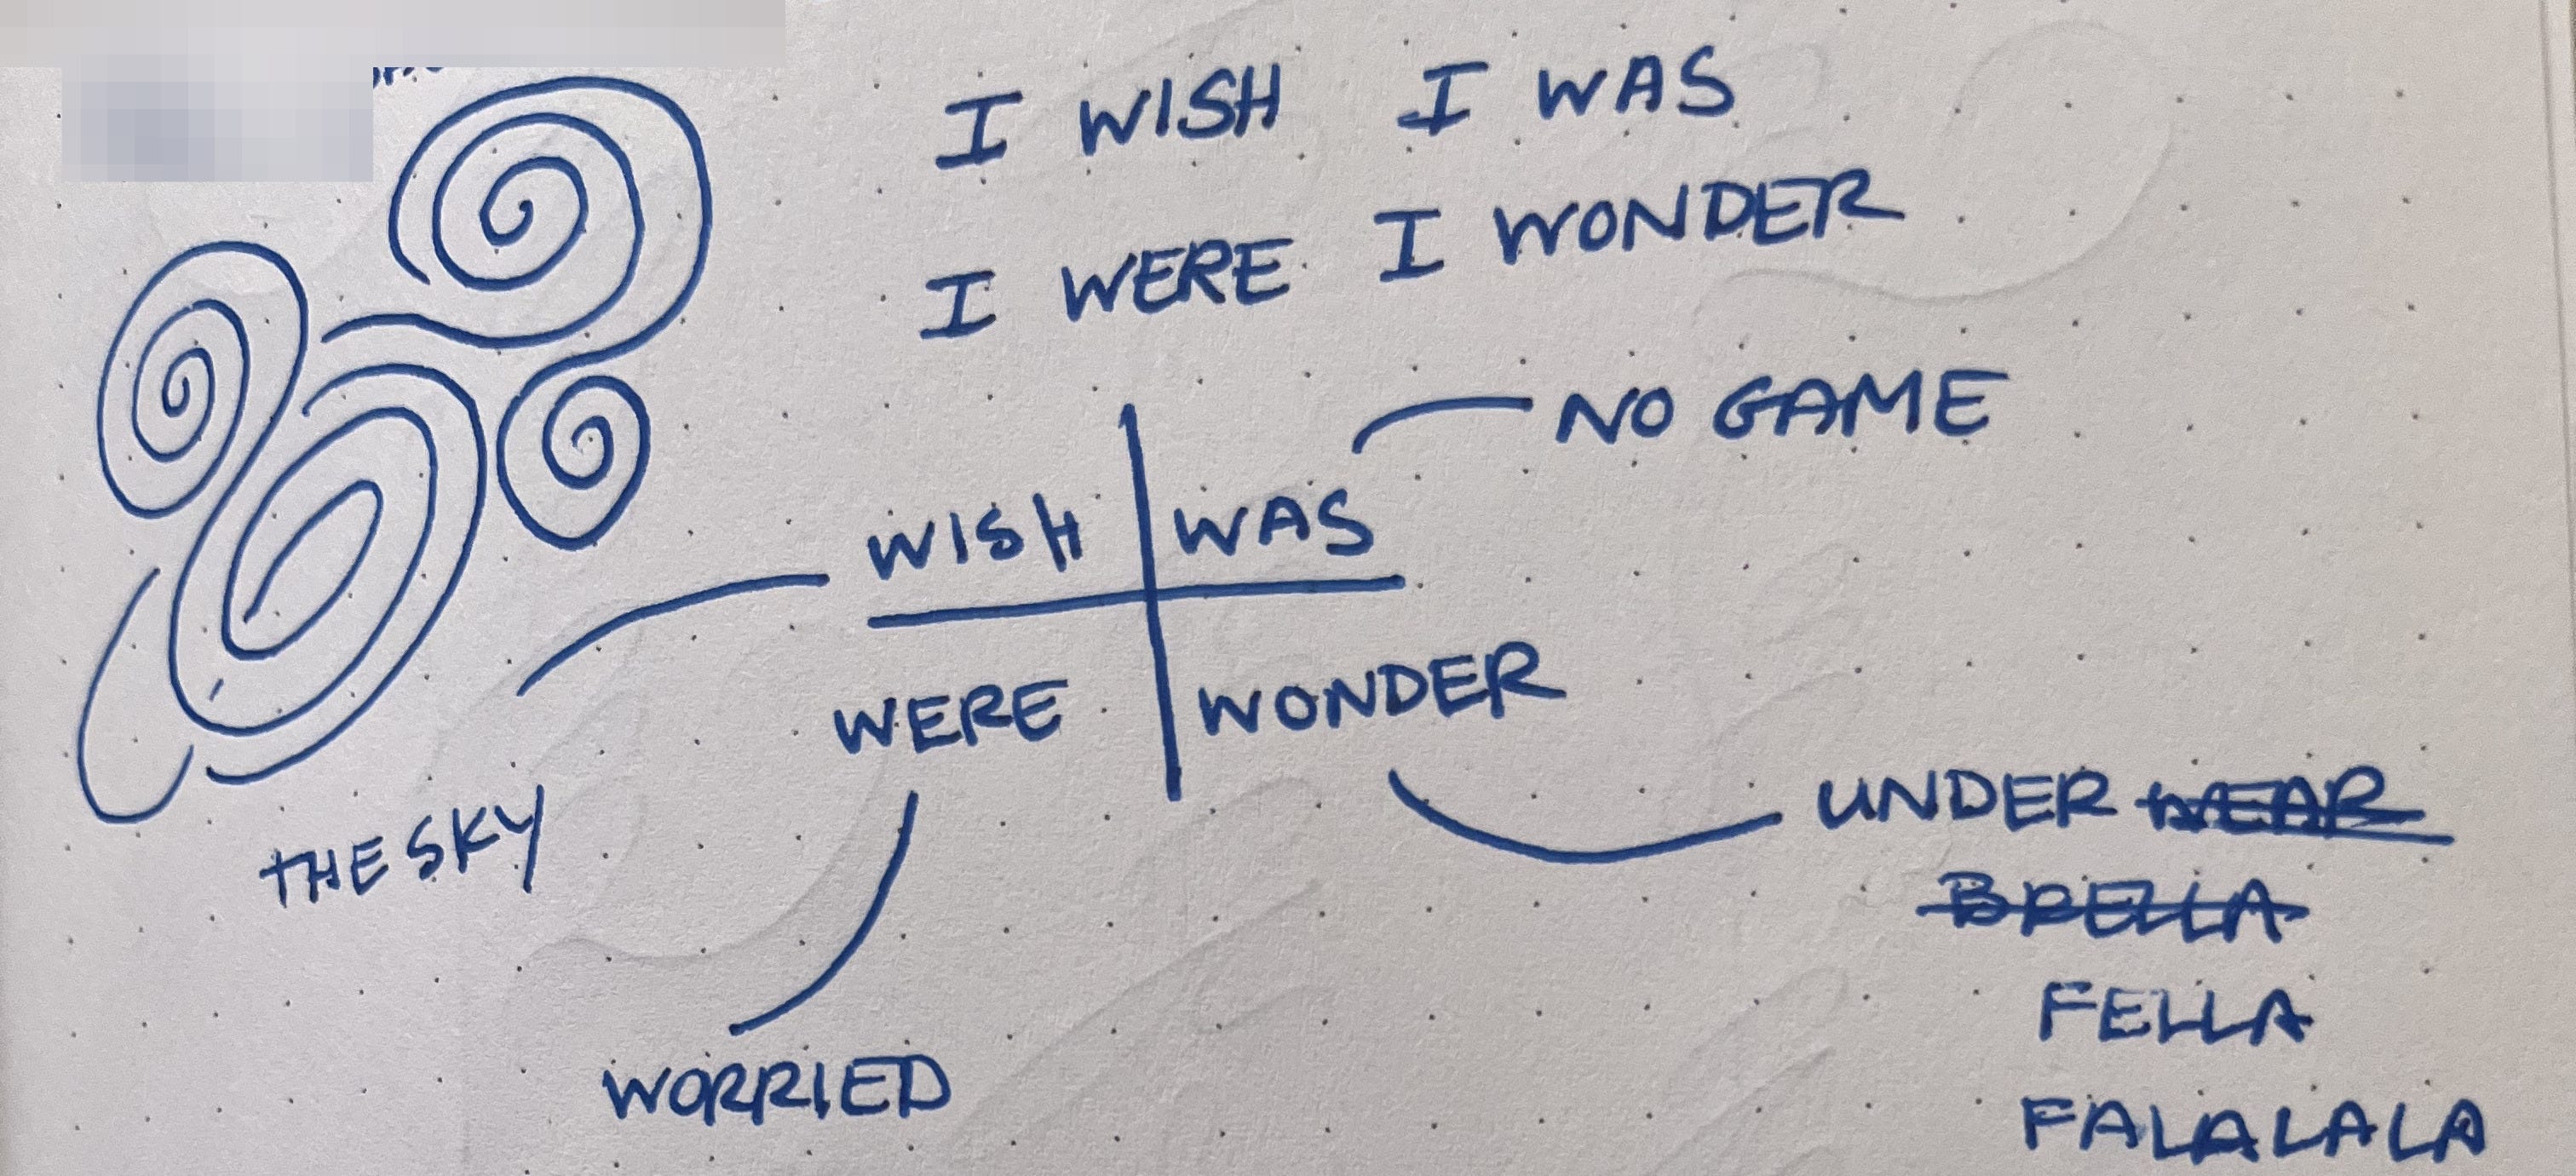 I WISH I WAS
I WERE I WONDER
NO GAME
WISH WAS
WERE WONDER
THE SKY
UNDER WEAR
BRELLA
FELLA
WORRIED
FALALALA